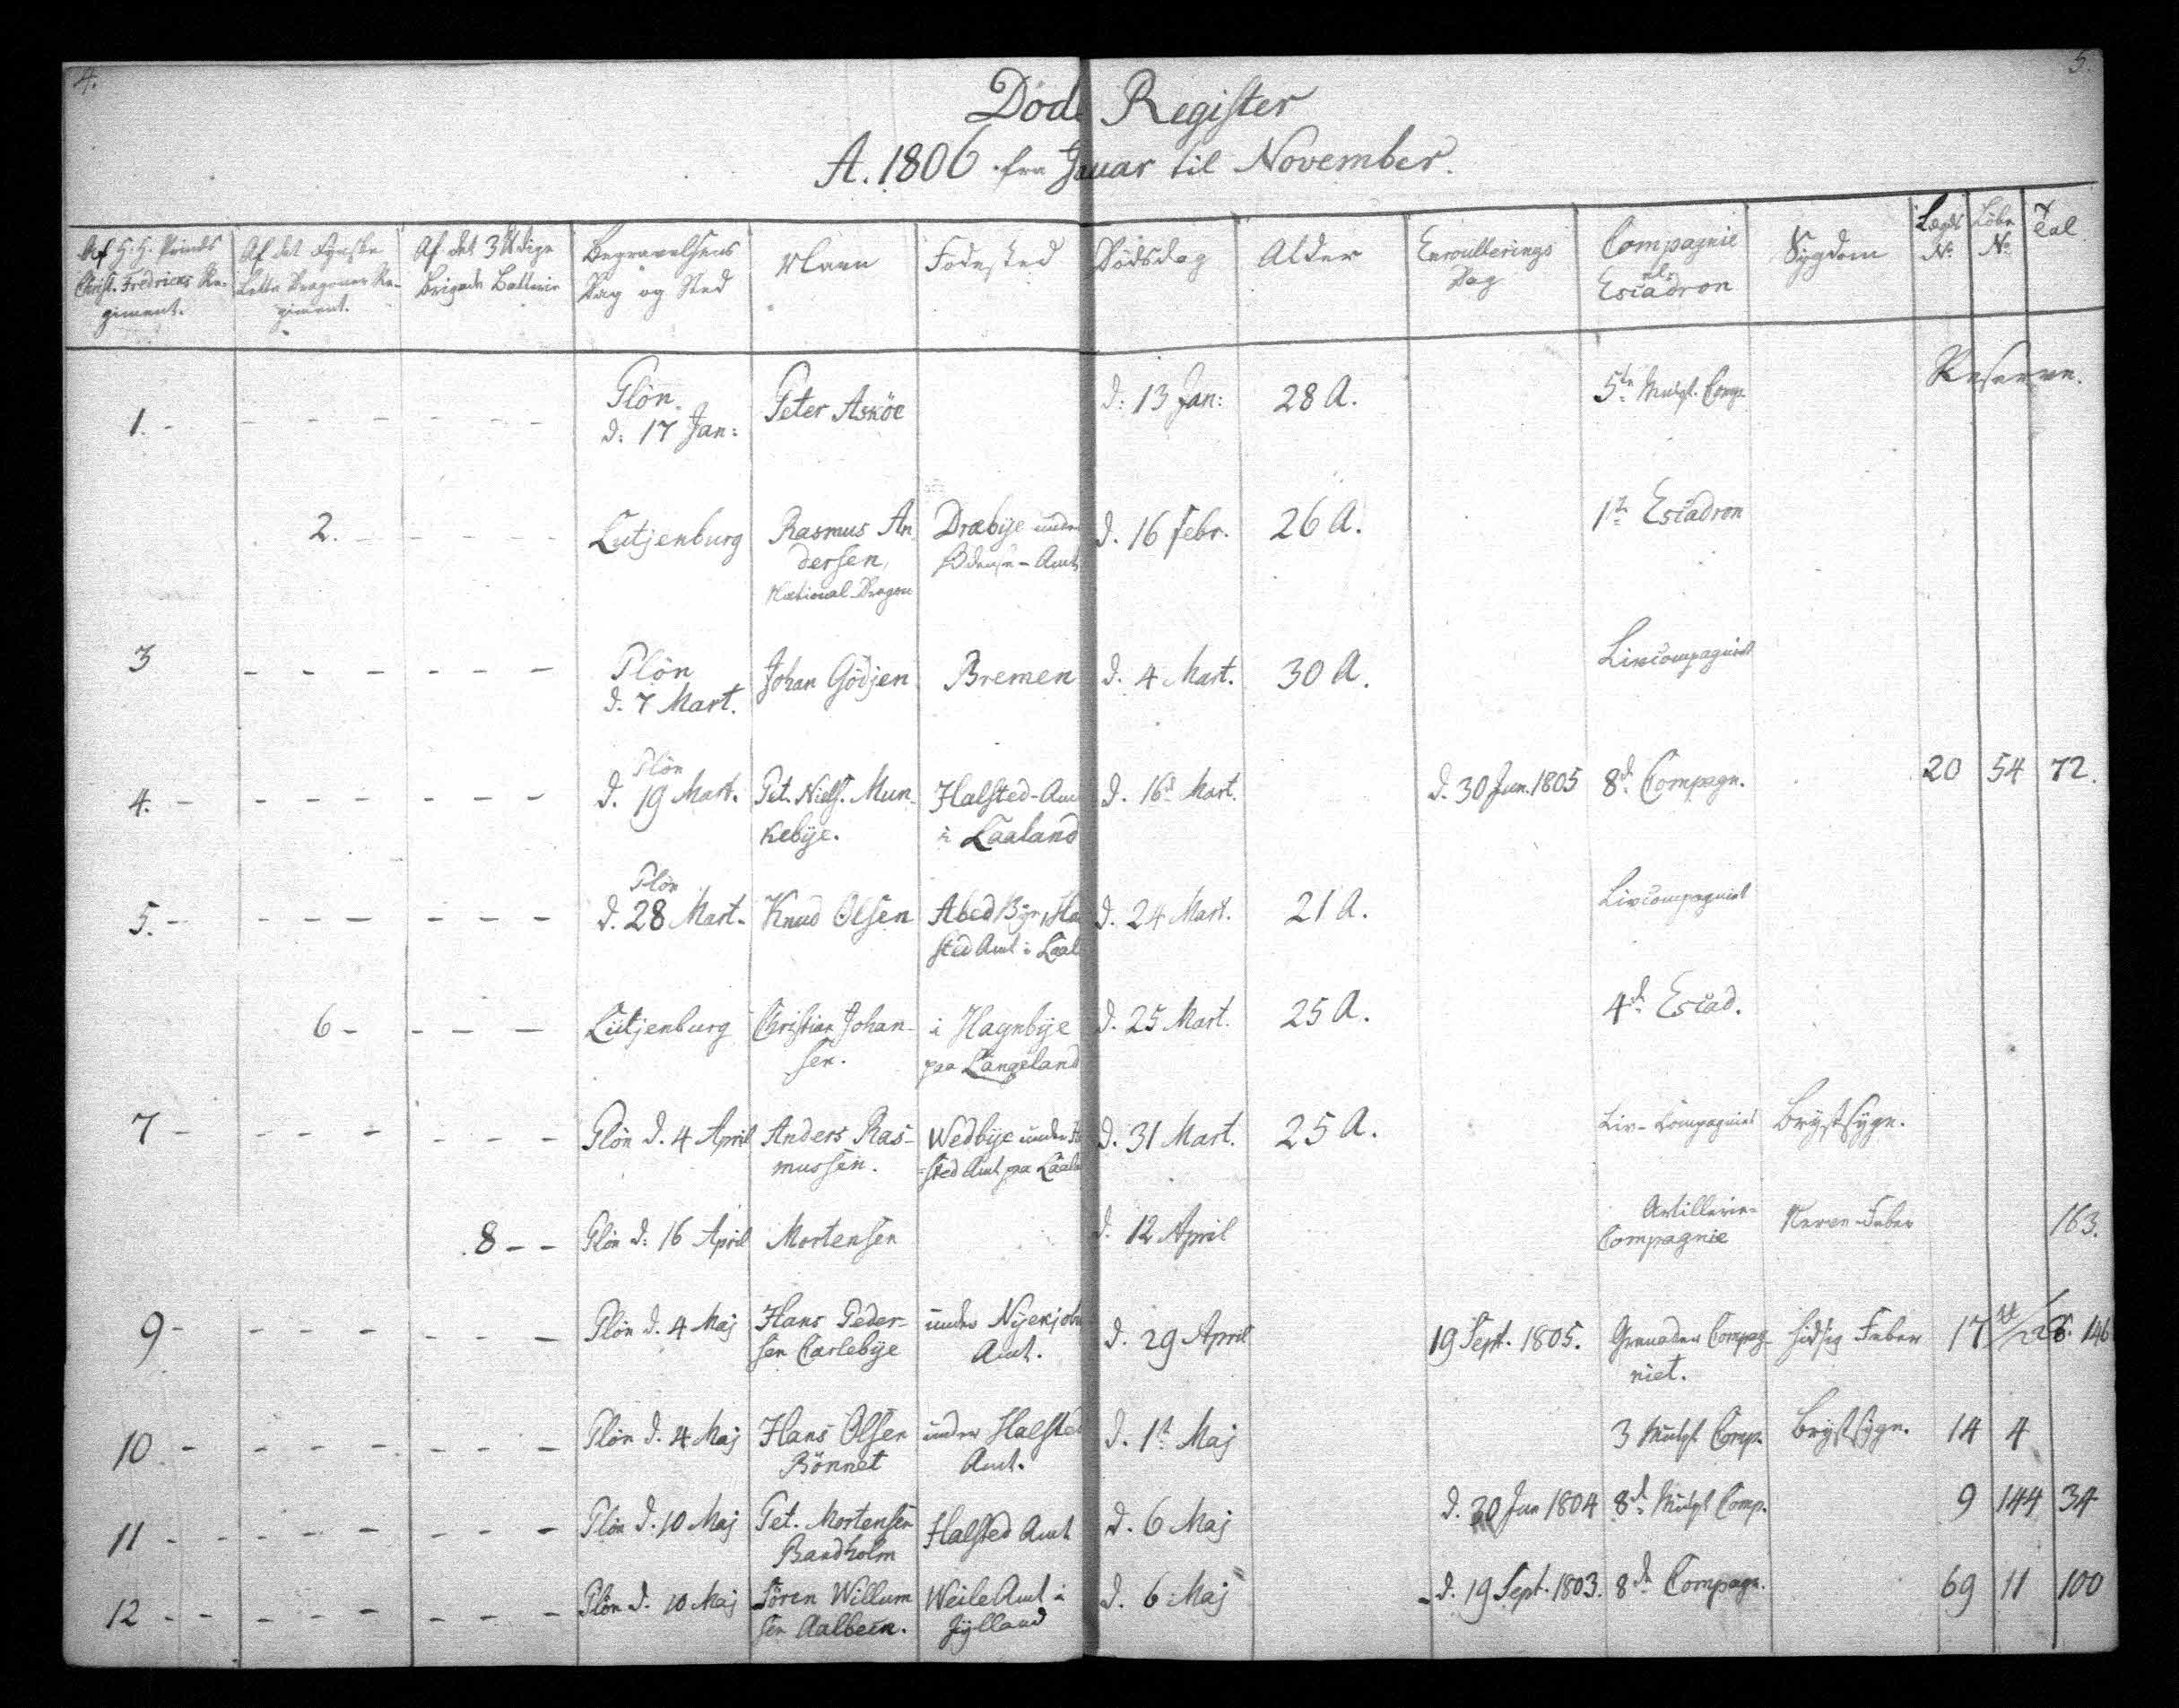 4.
5.
Döde Register
A. 1806 fra Januar til November.
Af H. H. Prinds Christ. Fredrics Regiment.
Af det Fynske Lette Dragoner Regiment.
Af det 3 Udige Brigade Batterie
Begravelsens Dag og Sted
Navn
Fodested
Dödsdag
Alder
Enroullerings Dag
Compagnie els Escadron
Sygdom
Lægds No
Löbe No
Tal
1. - Plön d: 17 Jan: Peter Asköe d: 13 Jan: 28 A. 5te Comp. Reserven.
2. - Lutjenburg Rasmus An
dersen, National Dragon
Dræbÿe under Odense-Amt
d. 16 Febr. 26 A. 1te Escadron
3 - Plön d. 7 Mart. Johan Gödjen Bremen d. 4 Mart. 30 A. Livcompagniet
4. - Plön d. 19 Mart. Pet. Niels. Mun
kebÿe.
Halsted-Amt
i Laaland
d. 16d Mart. d. 30 Jun. 1805 8d Compagn. 20 54 72.
5. - Plön d. 28 Mart. Knud Olsen Abed Bÿe, Hal
sted Amt i Laal
d. 24 Mart. 21 A. Livcompagniet
6 - Lütjenburg Christian Johan-
sen.
i Hagnbÿe
paa Langeland
d. 25 Mart. 25 A. 4d Escad.
7 - Plön d. 4 April Anders Ras-
mussen.
Wedbÿe under
sted Amt paa Laala
d. 31 Mart. 25 A. Liv-Compagniet Brÿstsÿge.
8 - - Plön d: 16 April Mortensen d. 12 April Artillerie-
Compagnie Nerve-Feber 163.
9 - Plön d. 4 Maj Hans Peder-
sen Carlebÿe
under Nÿekjöb
Amt.
d. 29 April 19 Sept. 1805. Grenadeer Compag-
niet. hidsig Feber 17 146
10 - Plön d. 4 Maj Hans Olsen
Rönnet
under Halsted
Amt.
d. 1st Maj 3 Comp. Brÿstsÿge. 14 4
11 - Plön d. 10 Maj Pet. Mortensen
Bandholm
Halsted Amt d. 6 Maj d. 30 Jun 1804 8d Comp. 9 144 34
12 - - Plön d. 10 Maj Sören Willum
sen Aalbeen.
Weile Amt i
Jÿlland
d. 6 Maj d. 19 Sept. 1803. 8d Compagn. 69 11 100